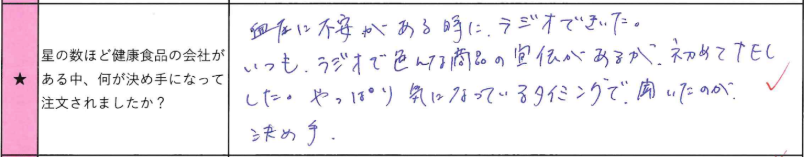 ★
星の数ほど健康食品の会社が
ある中、何が決め手になって
注文されましたか？
血圧に不安がある時に、ラジオできいた。
いつも、ラジオで色んな商品の宣伝があるが、初めてTEL
した。やっぱり気になっているタイミングで、聞いたのが、
決め手.